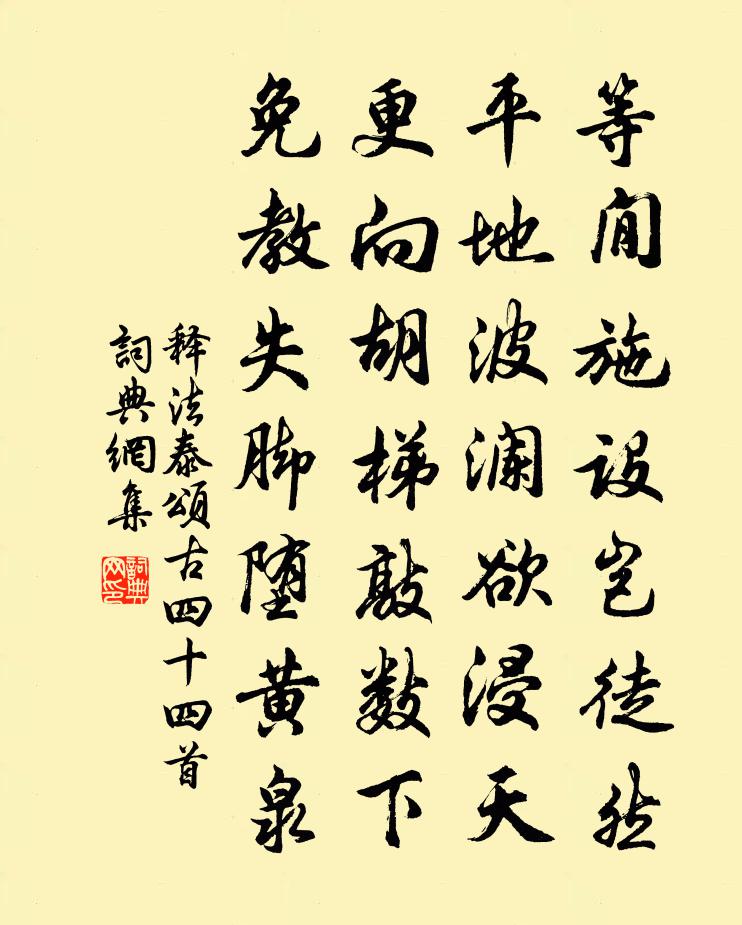 等闲施设岂徒然
平地波澜欲浸天
更向胡梯敲数下
免教失脚堕黄泉
释法泰頌古四十四首
詞典網集
詞典网印